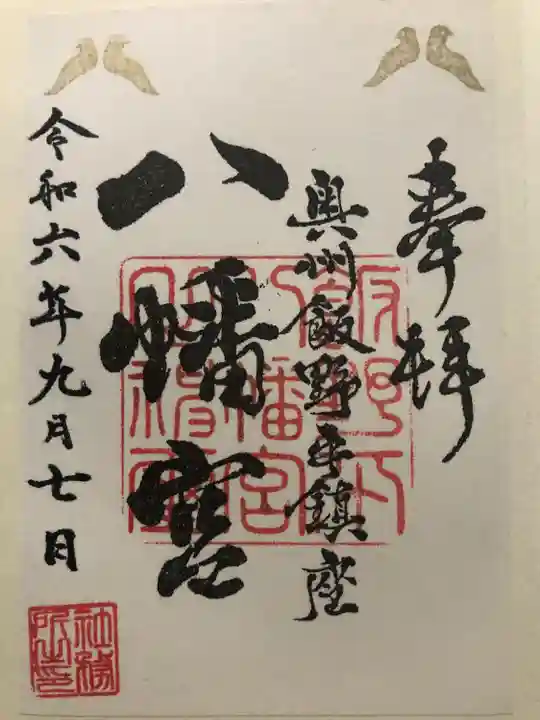 奉拝
奥州飯野平鎮座
八幡宮
令和六年九月七日
社務所印